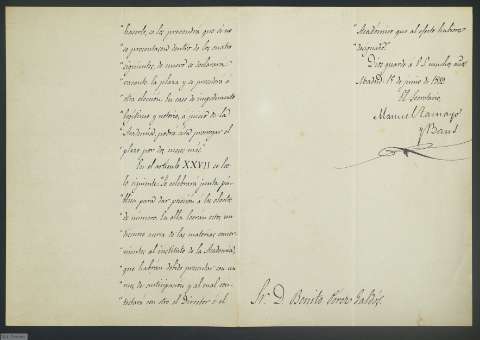 "hacerlo, se les prevendrá que si no
"se presentasen dentro de los cuatro
"siguientes, de nuevo se declarará
"vacante la plaza y se procederá á
"otra elección. En caso de impedimento
"legítimo y notorio, á juicio de la
"Academia, podrá esta prorrogar el
"plazo por dos meses más."
En el artículo XXVII se lee
lo siguiente: "Se celebrará junta pú-
"blica para dar posesión á los electos
"de número. En ella leerán estos un
"discurso acerca de las materias concer-
"nientes al instituto de la Academia,
"que habrán debido presentar con un
"mes de anticipación y al cual con-
"testará con otro el Director ó el
"Académico que al efecto hubiere
"designado."
Dios guarde á V. S. muchos años.
Madrid, 15 de junio de 1889.
El Secretario,
Manuel Tamayo
y Baus
Sr. D. Benito Pérez Galdós.